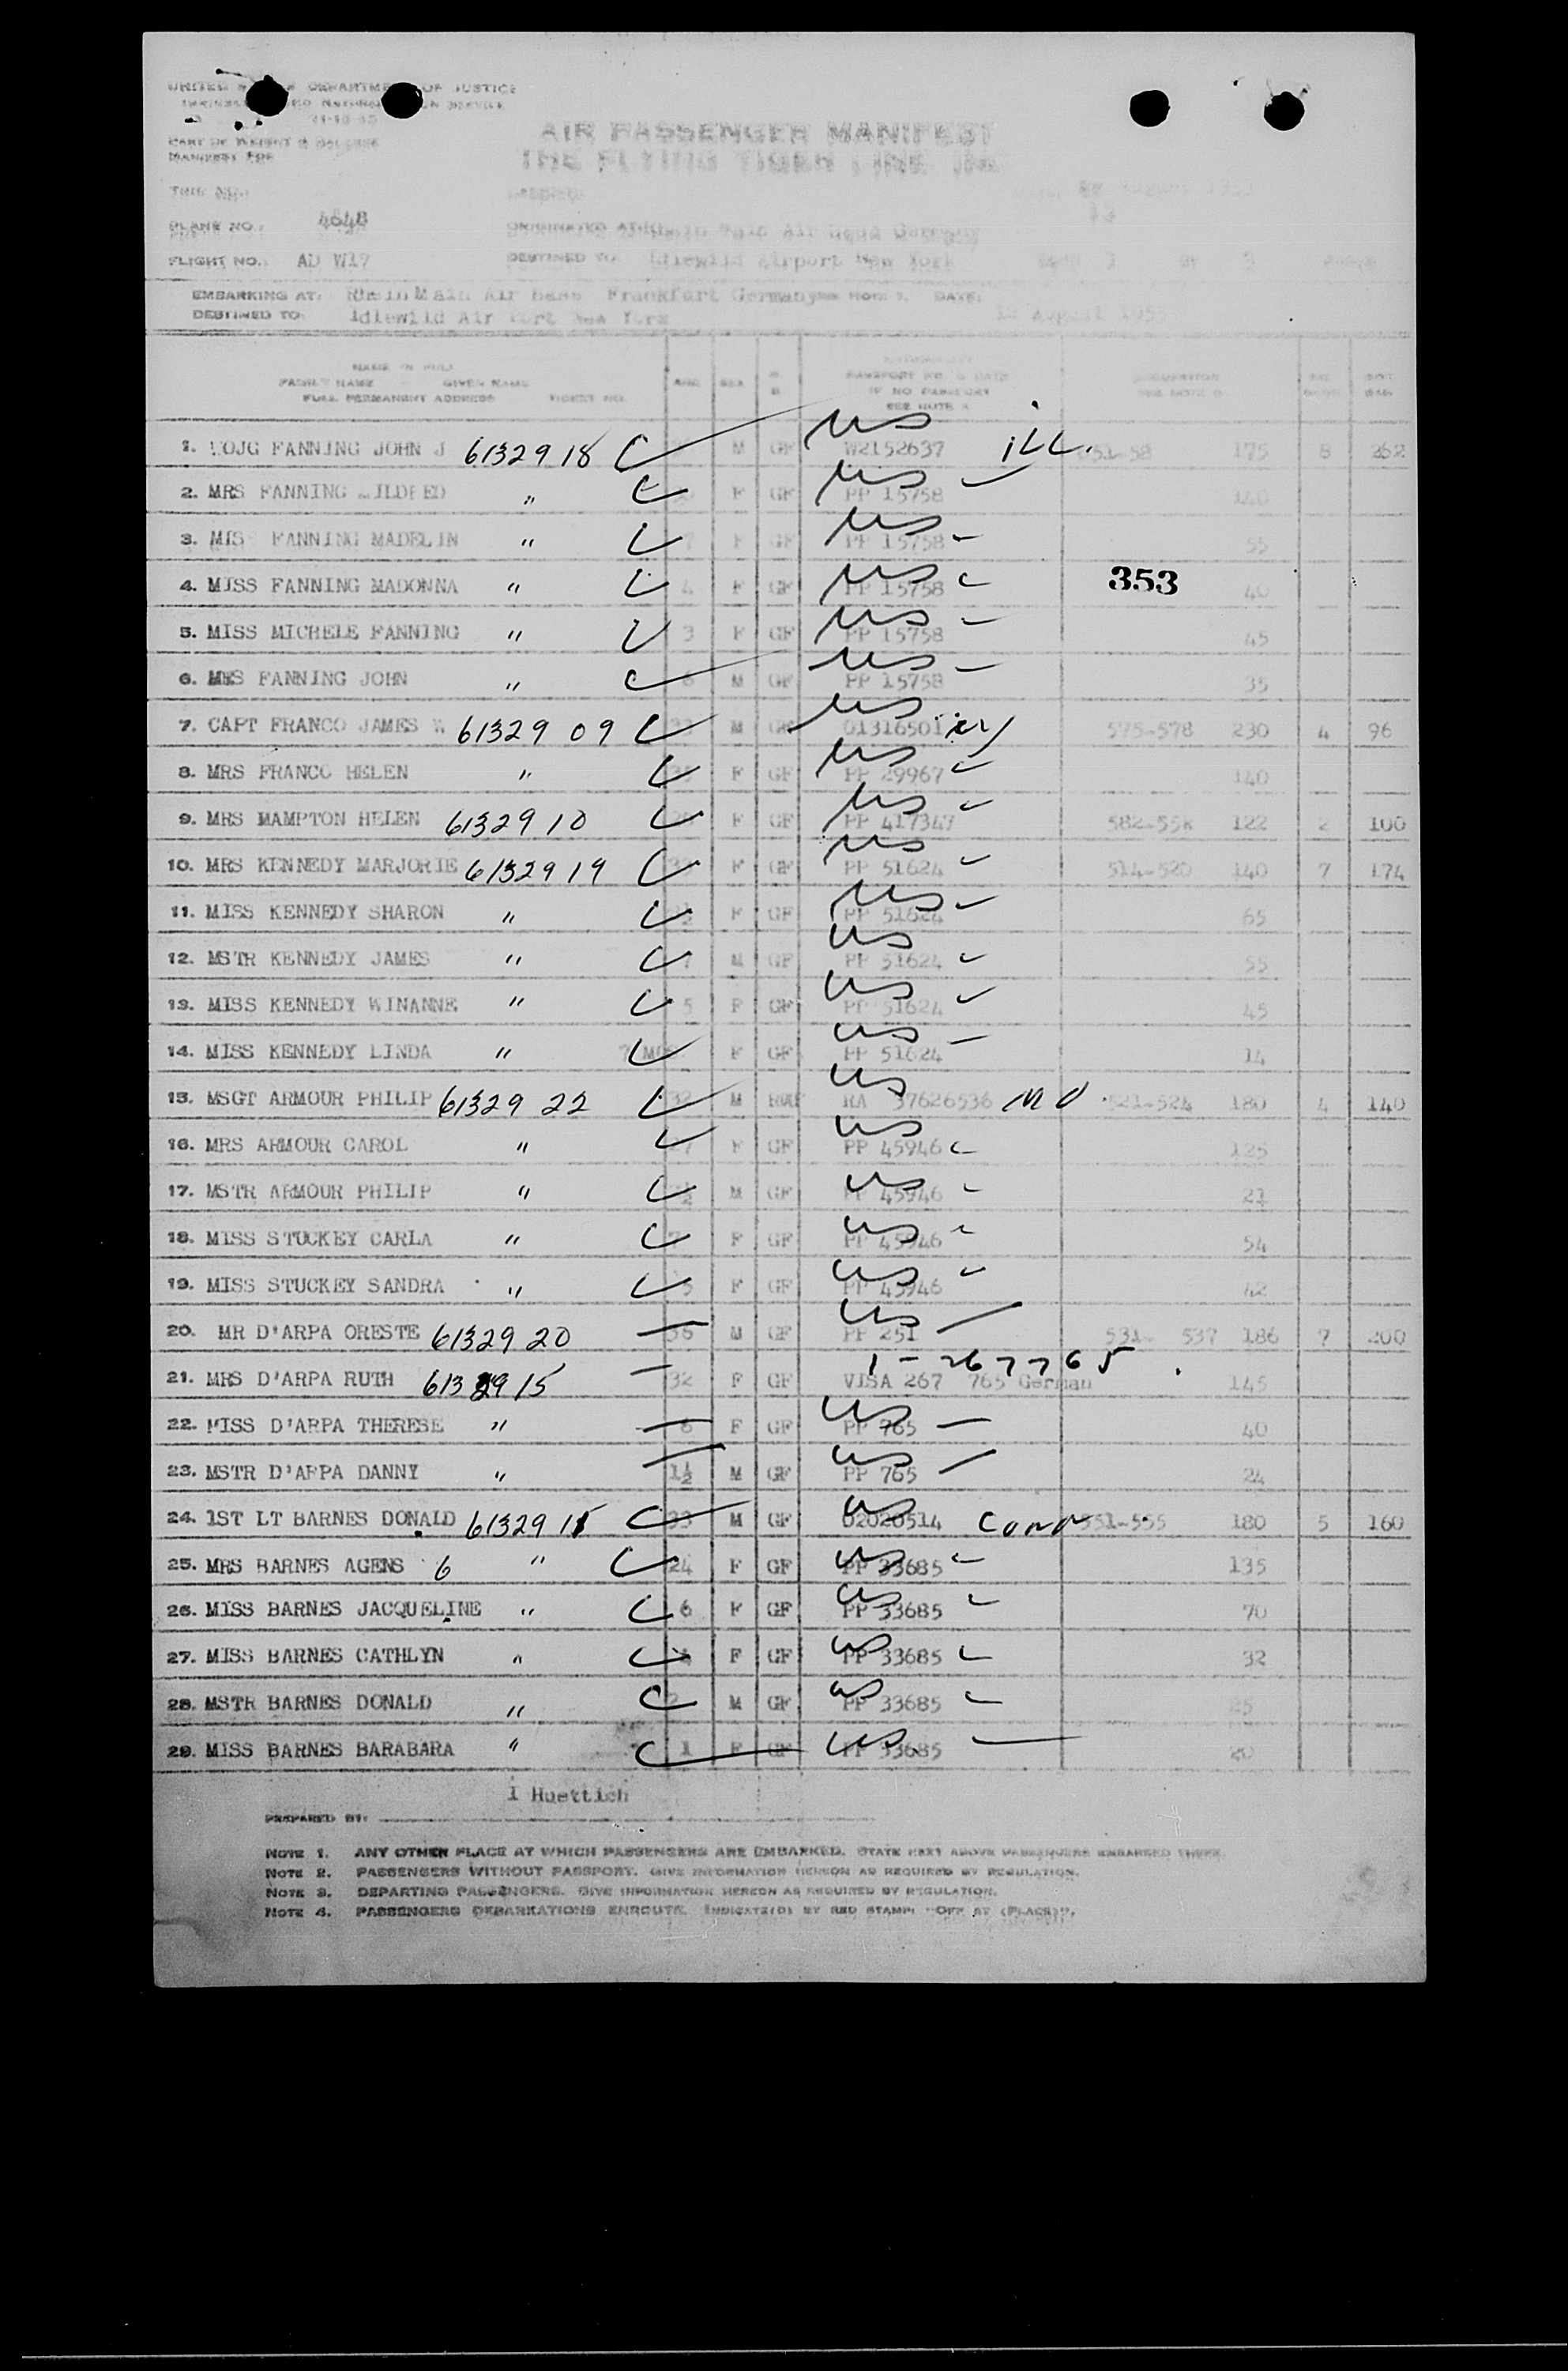 UNITED DEPARTMENT OF JUSTICE
PART OF WEIGHT & BALANCE
MANIFEST FOR
AIR PASSENGER MANIFEST
THE FLYING TIGER LINE INC
TRIP NO.:
PLANE NO.: 4648
ORIGINATED AT: Rhein Main Air Base Germany
FLIGHT NO.: AD W17 DESTINED TO: Idlewild Airport New York
EMBARKING AT: Rhein Main Air Base Frankfurt Germany SEE NOTE 1. DATE:
DESTINED TO: Idlewild Air Port New York 12 August 1953
NAME IN FULL
FAMILY NAME GIVEN NAME AGE SEX PASSPORT NO. & DATE
FULL PERMANENT ADDRESS TICKET NO. IF NO PASSPORT
SEE NOTE 2
1. WOJG FANNING JOHN J 6132918 M GF US W2152637 ill. 175 8 252
2. MRS FANNING MILDRED " F GF US PP 15758 140
3. MISS FANNING MADELIN " 7 F GF US PP 15758 55
4. MISS FANNING MADONNA " 4 F GF US PP 15758 353 40
5. MISS MICHELE FANNING " 3 F GF US PP 15758 45
6. FANNING JOHN " M GF US PP 15758 35
7. CAPT FRANCO JAMES W. 6132909 M GF US 01316501 575-578 230 4 96
8. MRS FRANCO HELEN " F GF US PP 29967 140
9. MRS MAMPTON HELEN 6132910 F GF US PP 417347 122 2 100
10. MRS KENNEDY MARJORIE 6132919 F GF US PP 51624 514-520 140 7 174
11. MISS KENNEDY SHARON " F GF US PP 51624 65
12. MSTR KENNEDY JAMES " 7 M GF US PP 51624 55
13. MISS KENNEDY WINANNE " 5 F GF US PP 51624 45
14. MISS KENNEDY LINDA " 7 MOS F GF US PP 51624 14
15. MSGT ARMOUR PHILIP 6132922 32 M US RA 37626536 MO 521-524 180 4 140
16. MRS ARMOUR CAROL " 27 F GF US PP 45946 125
17. MSTR ARMOUR PHILIP " M GF US PP 45946
18. MISS STUCKEY CARLA " 7 F GF US PP 45946 54
19. MISS STUCKEY SANDRA " 5 F GF US PP 45946 42
20. MR D'ARPA ORESTE 6132920 36 M GF US PP 251 531- 537 186 7 200
21. MRS D'ARPA RUTH 6132915 32 F GF 1-267765 VISA 267 765 German 145
22. MISS D'ARPA THERESE " 6 F GF US PP 765 40
23. MSTR D'ARPA DANNY " 1½ M GF US PP 765 24
24. 1ST LT BARNES DONALD 6132911 33 M GF US 02020514 Conn 551-555 180 5 160
25. MRS BARNES AGENS 6 " 24 F GF US PP 33685 135
26. MISS BARNES JACQUELINE " 6 F GF US PP 33685 70
27. MISS BARNES CATHLYN " 4 F GF US PP 33685 32
28. MSTR BARNES DONALD " 2 M GF US PP 33685 25
29. MISS BARNES BARABARA " 1 F GF US PP 33685 20
I Huettich
PREPARED BY:
NOTE 1. ANY OTHER PLACE AT WHICH PASSENGERS ARE EMBARKED. STATE NEXT ABOVE PASSENGERS EMBARKED THERE.
NOTE 2. PASSENGERS WITHOUT PASSPORT. GIVE INFORMATION HEREON AS REQUIRED BY REGULATION.
NOTE 3. DEPARTING PASSENGERS. GIVE INFORMATION HEREON AS REQUIRED BY REGULATION.
NOTE 4. PASSENGERS DEBARKATIONS ENROUTE. INDICATE(D) BY RED STAMP: "OFF AT (PLACE)".